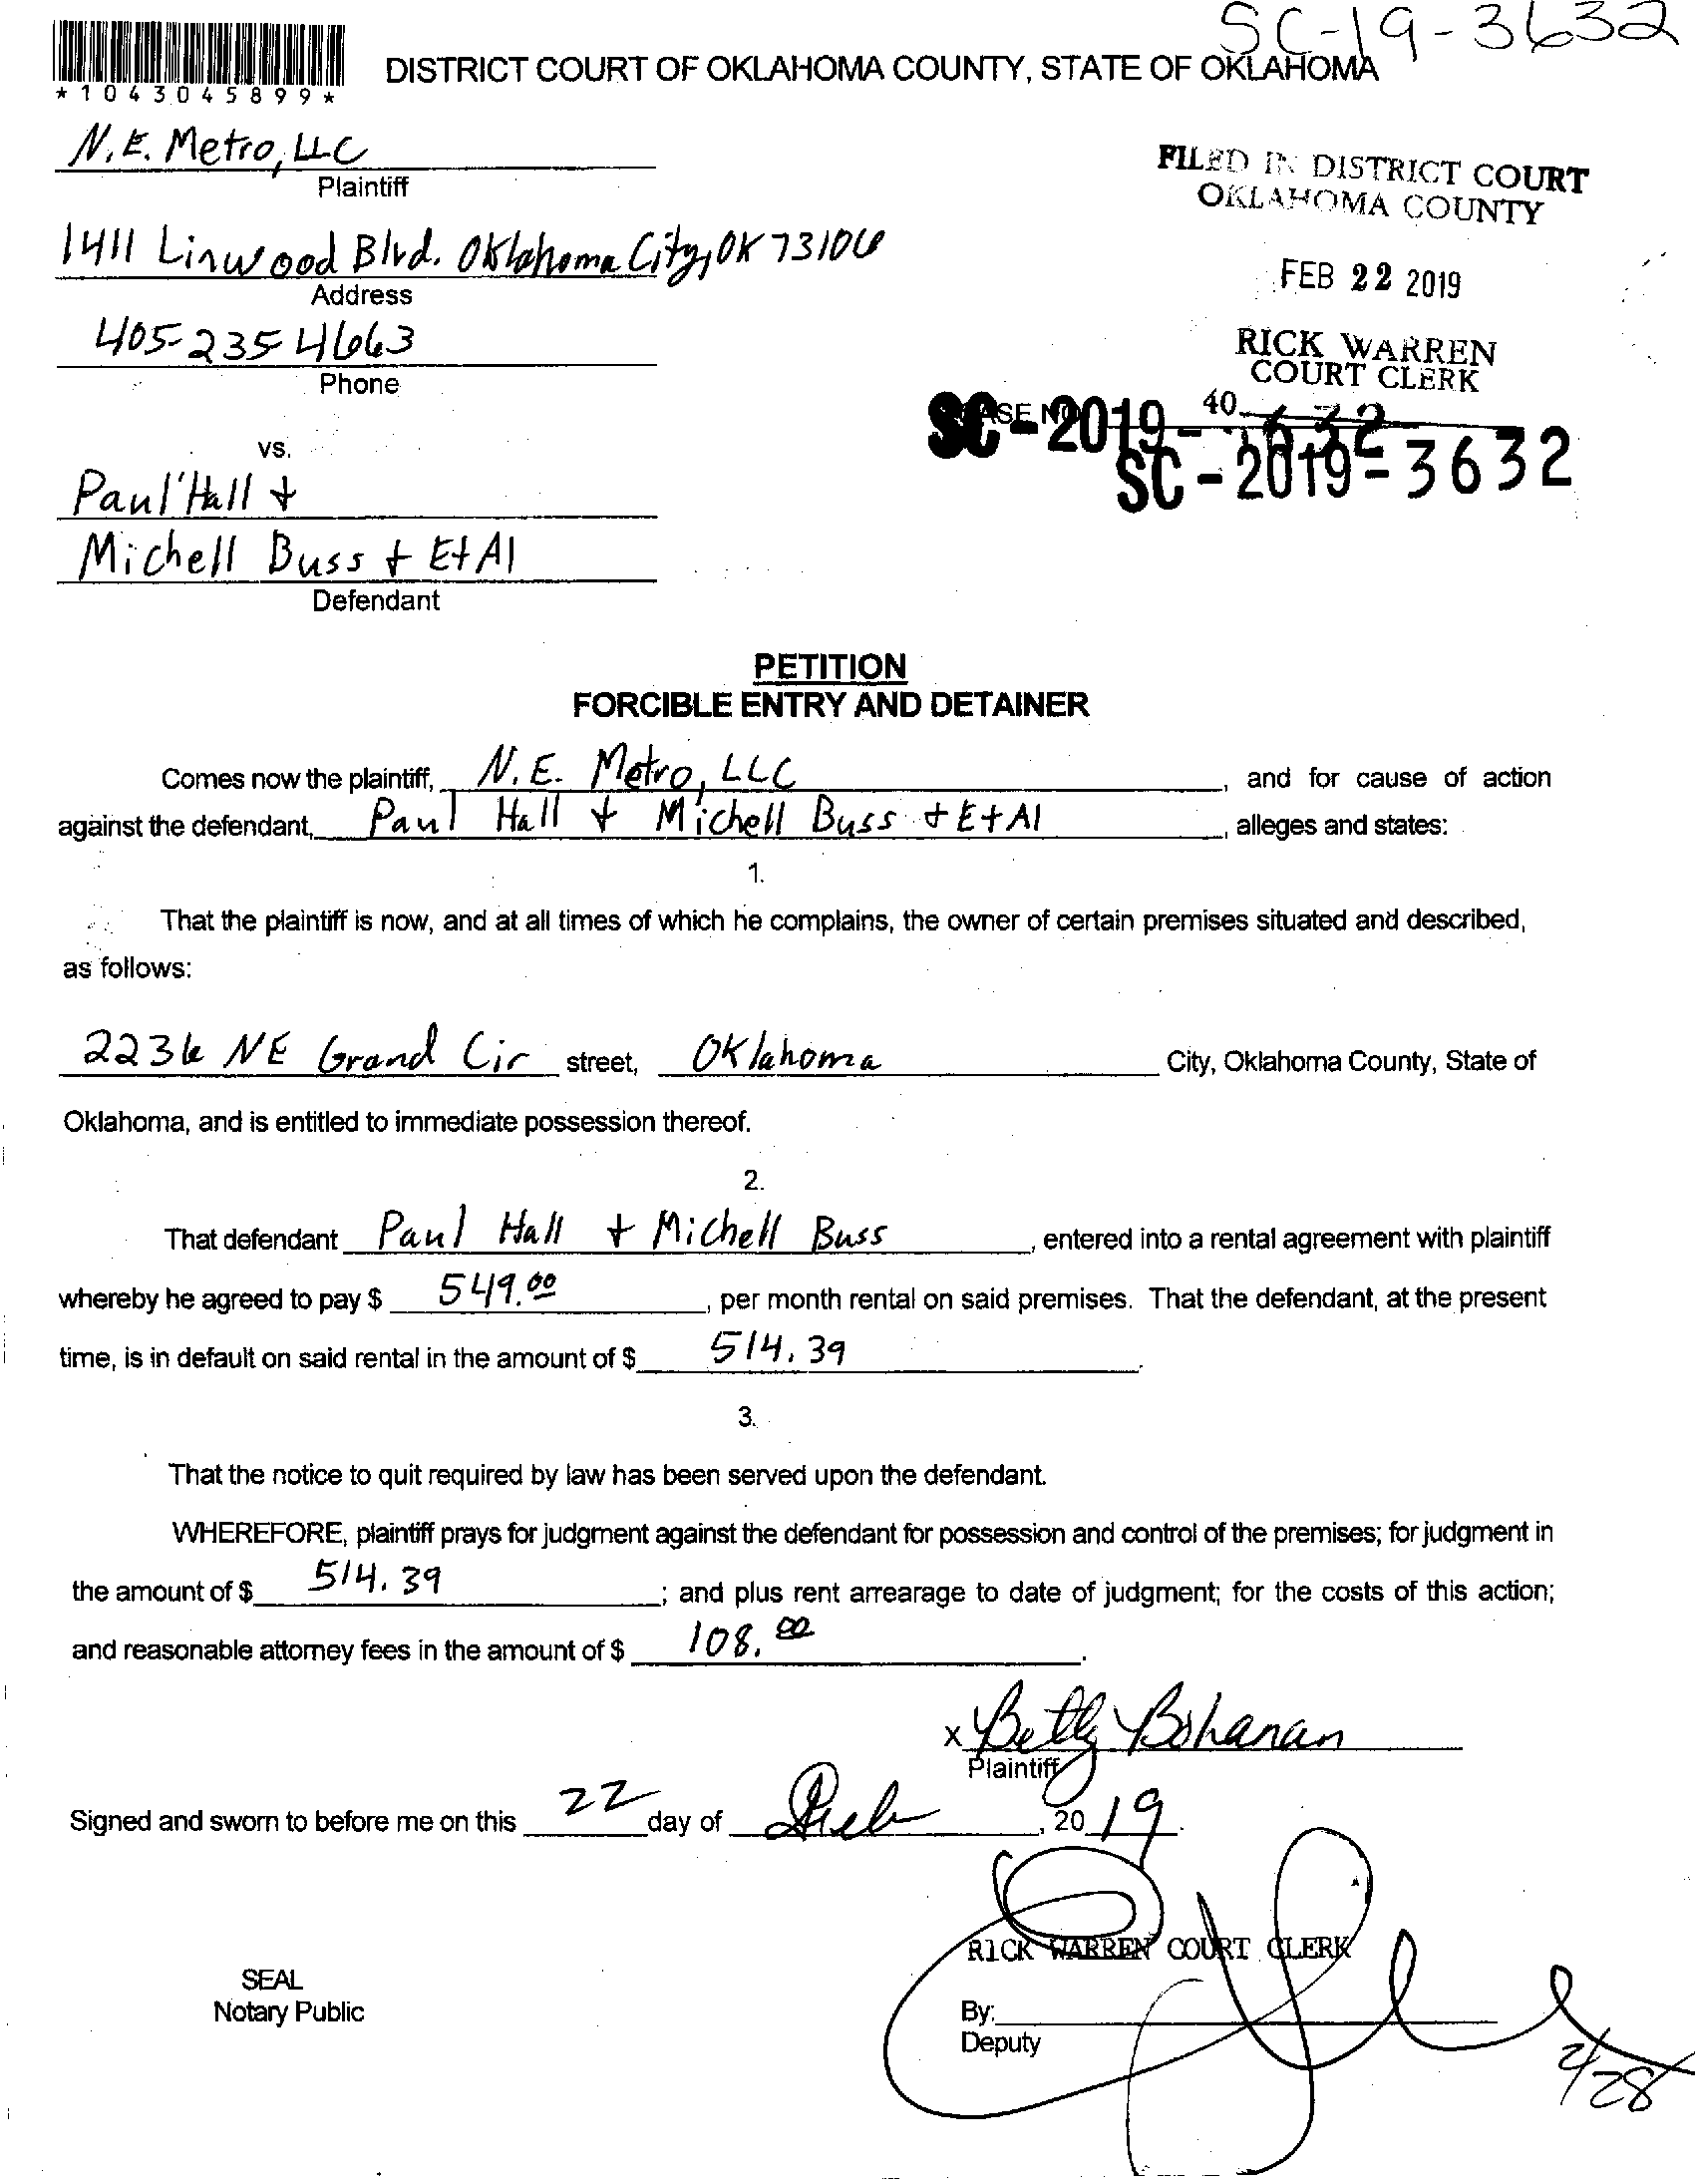 SC-19-3632
*1043045899*
DISTRICT COURT OF OKLAHOMA COUNTY, STATE OF OKLAHOMA
N.E. Metro, LLC
Plaintiff
FILED IN DISTRICT COURT
OKLAHOMA COUNTY
1411 Linwood Blvd. Oklahoma City, OK 73106
Address
FEB 22 2019
405-235-4663
Phone
RICK WARREN
COURT CLERK
40
SC-2019-
SC-2019-3632
vs.
Paul Hall +
Michell Buss + Et Al
Defendant
PETITION
FORCIBLE ENTRY AND DETAINER
Comes now the plaintiff, N.E. Metro, LLC, and for cause of action
against the defendant, Paul Hall + Michell Buss + Et Al, alleges and states:
1.
That the plaintiff is now, and at all times of which he complains, the owner of certain premises situated and described,
as follows:
2236 NE Grand Cir street, Oklahoma City, Oklahoma County, State of
Oklahoma, and is entitled to immediate possession thereof.
2.
That defendant Paul Hall + Michell Buss, entered into a rental agreement with plaintiff
whereby he agreed to pay $ 549.00, per month rental on said premises. That the defendant, at the present
time, is in default on said rental in the amount of $ 514.39.
3.
That the notice to quit required by law has been served upon the defendant.
WHEREFORE, plaintiff prays for judgment against the defendant for possession and control of the premises; for judgment in
the amount of $ 514.39; and plus rent arrearage to date of judgment; for the costs of this action;
and reasonable attorney fees in the amount of $ 108.00.
x Betty Bohanan
Plaintiff
Signed and sworn to before me on this 22 day of Feb, 2019.
RICK WARREN COURT CLERK
SEAL
Notary Public
By:
Deputy
2/28